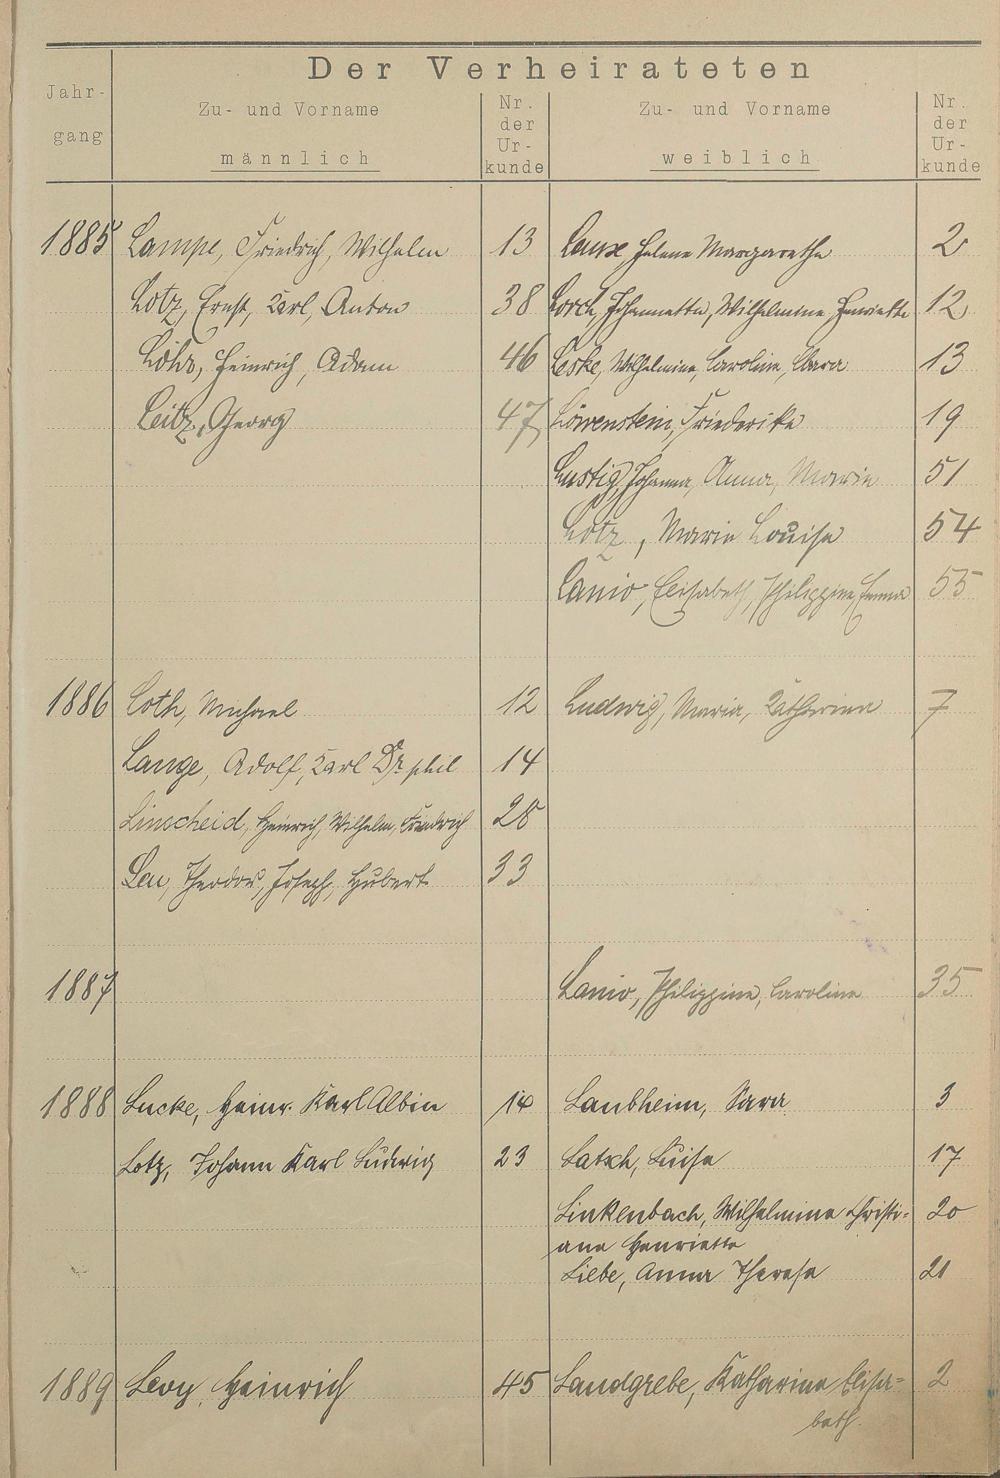 Der Verheirateten
Jahr-
gang
Zu- und Vorname
männlich
Nr.
der
Ur-
kunde
Zu- und Vorname
weiblich
Nr.
der
Ur-
kunde
1885 Lampe, Friedrich, Wilhelm 13 Helene Margarethe 2
Lotz, Ernst, Karl, Anton 38 Lorch, Johannetta, Wilhelmine Henriette 12
Löhr, Heinrich, Adam 46 Wilhelmine, Caroline, Clara 13
Leitz, Georg 47 Löwenstein, Friederike 19
Lustig, Johanna, Anna, Maria 51
Lotz, Marie Louise 54
Lanio, Elisabeth, Philippine, Emma 55
1886 Loth, Michael 12 Ludwig, Maria, Katharina 7
Lange, Adolf, Karl Dr. phil 14
Linscheid, Heinrich, Wilhelm, Friedrich 28
Leu, Theodor, Joseph, Hubert 33
1887 Lanio, Philippine, Caroline 35
1888 Lucke, Heinr. Karl Albin 14 Laubheim, Sara 3
Lotz, Johann Karl Ludwig 23 Latsch, Luise 17
Linkenbach, Wilhelmine Christi- 20
ane Henriette
Liebe, Anna Therese 21
1889 Levy, Heinrich 45 Landgrebe, Katharina Elisa- 2
beth.